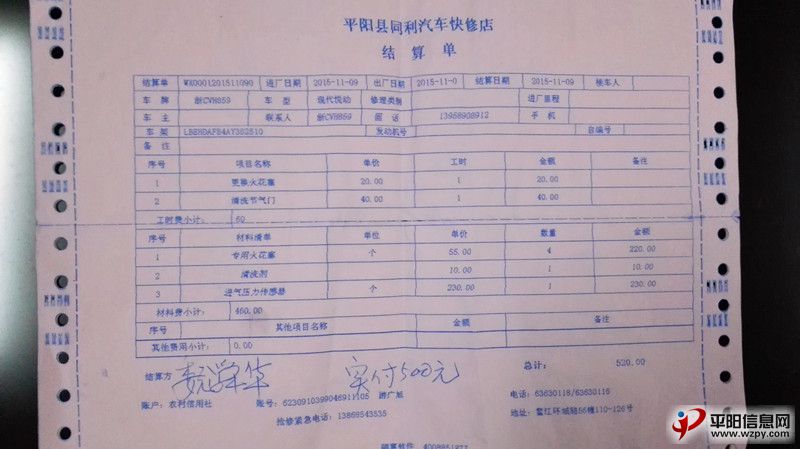 平阳县同利汽车快修店
结 算 单
结算单 WX000120151109 进厂日期 2015-11-09 出厂日期 2015-11-0 结算日期 2015-11-09 接车人
车 牌 浙CVH859 车 型 现代悦动 修理类别 进厂里程
车 主 联系人 浙CVH859 电 话 13958908912 手 机
车 架 发动机号 自编号
备 注
序号 项目名称 单价 工时 金额 备注
1 更换火花塞 20.00 1 20.00
2 清洗节气门 40.00 1 40.00
工时费小计: 60
序号 材料清单 单位 单价 数量 金额
1 专用火花塞 个 55.00 4 220.00
2 清洗剂 10.00 1 10.00
3 进气压力传感器 个 230.00 1 230.00
材料费小计: 460.00
序号 其他项目名称 金额 备注
其他费用小计: 0.00
结算方 实付500元 总计: 520.00
账户: 农村信用社 账号: 6230910399046911105 游广旭 电话: 63630118/63630116
抢修紧急电话: 13868543535 地址: 鳌江环城路56幢110-126号
平阳信息网
www.wzpy.com